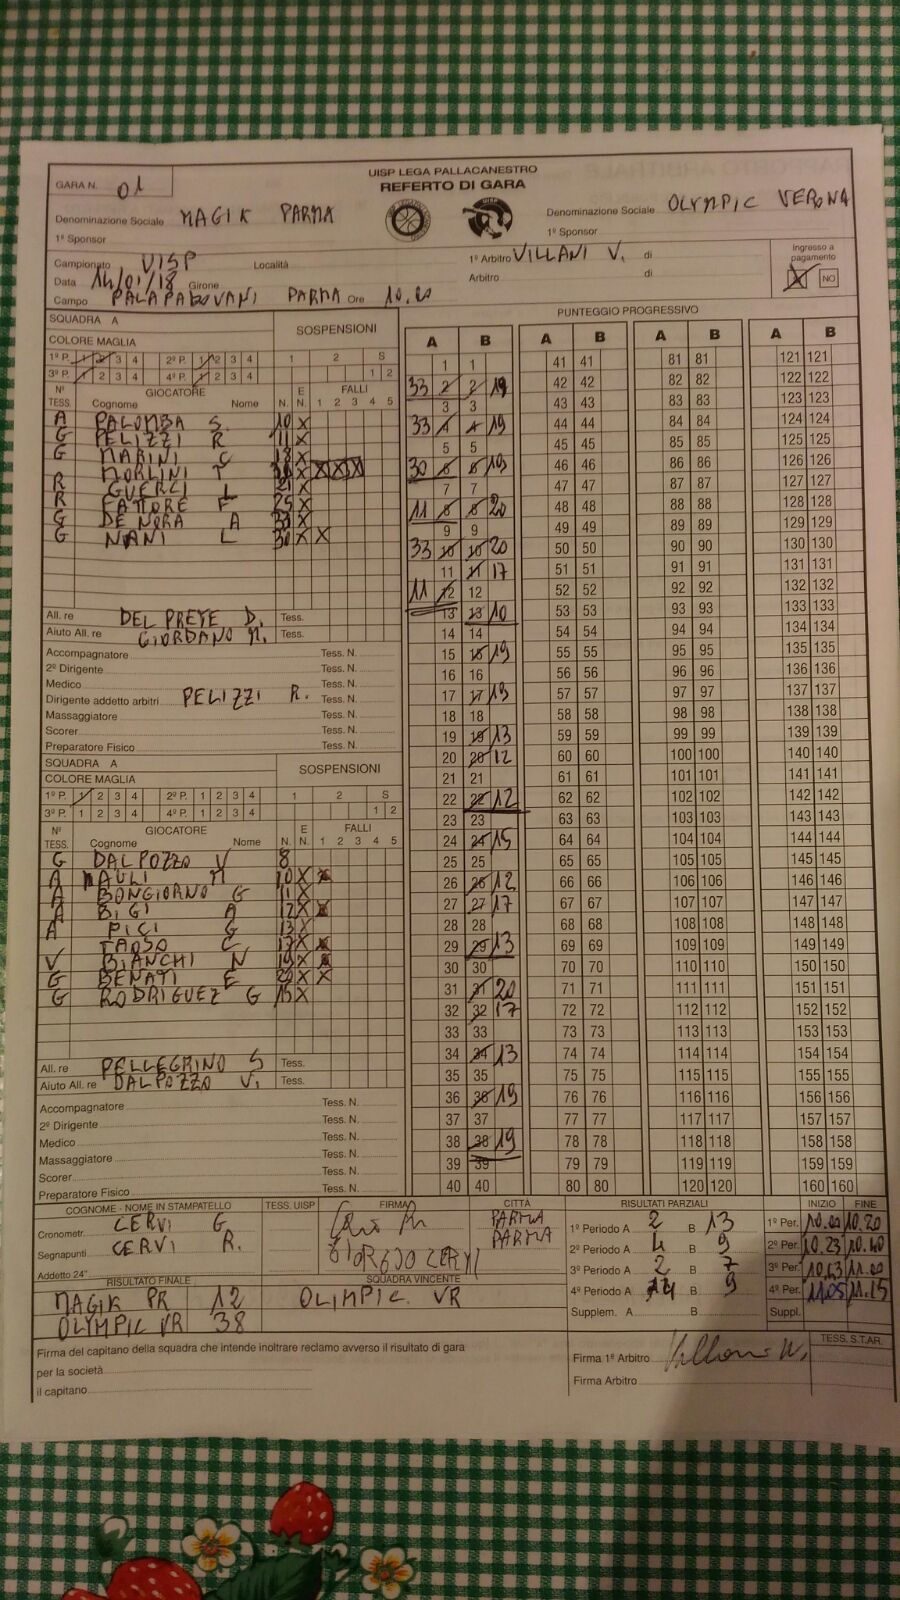 UISP LEGA PALLACANESTRO
REFERTO DI GARA
GARA N. 01
Denominazione Sociale MAGIK PARMA
Denominazione Sociale OLYMPIC VERONA
1º Sponsor
1º Sponsor
Campionato UISP Località
1º Arbitro VILLANI V. di
Ingresso a pagamento NO
Data 14/01/18 Girone
Arbitro di
Campo PALAPADOVANI PARMA Ore 10.00
SQUADRA A
SOSPENSIONI
COLORE MAGLIA
1º P. 1 2 3 4 2º P. 1 2 3 4 1 2 S
3º P. 1 2 3 4 4º P. 1 2 3 4 1 2
Nº TESS. GIOCATORE Cognome Nome N. E N. FALLI 1 2 3 4 5
A PALOMBA S. 10 X
G PELIZZI R 11 X
G MARINI C 18 X
MORLINI T X X X X
R GUERCI L 21 X
R FATTORE F 25 X
G DE NORA A X
G NANI L 30 X X
All. re DEL PRETE D. Tess.
Aiuto All. re GIORDANO M. Tess.
Accompagnatore Tess. N.
2º Dirigente Tess. N.
Medico Tess. N.
Dirigente addetto arbitri PELIZZI R. Tess. N.
Massaggiatore Tess. N.
Scorer Tess. N.
Preparatore Fisico Tess. N.
SQUADRA A
SOSPENSIONI
COLORE MAGLIA
1º P. 1 2 3 4 2º P. 1 2 3 4 1 2 S
3º P. 1 2 3 4 4º P. 1 2 3 4 1 2
Nº TESS. GIOCATORE Cognome Nome N. E N. FALLI 1 2 3 4 5
G DALPOZZO V 8
A PAULI M 10 X X
A BONGIORNO G 11 X
A BIGI A 12 X X
A PICI G 13 X
TAOSO C 17 X X
V BIANCHI N 19 X X
G BENATI E 20 X X
G RODRIGUEZ G 15 X
All. re PELLEGRINO S Tess.
Aiuto All. re DALPOZZO V. Tess.
Accompagnatore Tess. N.
2º Dirigente Tess. N.
Medico Tess. N.
Massaggiatore Tess. N.
Scorer Tess. N.
Preparatore Fisico Tess. N.
PUNTEGGIO PROGRESSIVO
A B A B A B A B
1 1 41 41 81 81 121 121
33 2 2 19 42 42 82 82 122 122
3 3 43 43 83 83 123 123
33 4 4 19 44 44 84 84 124 124
5 5 45 45 85 85 125 125
30 6 6 19 46 46 86 86 126 126
7 7 47 47 87 87 127 127
11 8 8 20 48 48 88 88 128 128
9 9 49 49 89 89 129 129
33 10 10 20 50 50 90 90 130 130
11 11 17 51 51 91 91 131 131
11 12 12 52 52 92 92 132 132
13 13 10 53 53 93 93 133 133
14 14 54 54 94 94 134 134
15 15 19 55 55 95 95 135 135
16 16 56 56 96 96 136 136
17 17 19 57 57 97 97 137 137
18 18 58 58 98 98 138 138
19 19 13 59 59 99 99 139 139
20 20 12 60 60 100 100 140 140
21 21 61 61 101 101 141 141
22 22 12 62 62 102 102 142 142
23 23 63 63 103 103 143 143
24 24 15 64 64 104 104 144 144
25 25 65 65 105 105 145 145
26 26 12 66 66 106 106 146 146
27 27 17 67 67 107 107 147 147
28 28 68 68 108 108 148 148
29 29 13 69 69 109 109 149 149
30 30 70 70 110 110 150 150
31 31 20 71 71 111 111 151 151
32 32 17 72 72 112 112 152 152
33 33 73 73 113 113 153 153
34 34 13 74 74 114 114 154 154
35 35 75 75 115 115 155 155
36 36 19 76 76 116 116 156 156
37 37 77 77 117 117 157 157
38 38 19 78 78 118 118 158 158
39 39 79 79 119 119 159 159
40 40 80 80 120 120 160 160
COGNOME - NOME IN STAMPATELLO TESS. UISP FIRMA CITTÀ
Cronometr. CERVI G. PARMA
Segnapunti CERVI R. PARMA
Addetto 24"
RISULTATI PARZIALI INIZIO FINE
1º Periodo A 2 B 13 1º Per. 10.00 10.20
2º Periodo A 4 B 9 2º Per. 10.23 10.40
3º Periodo A 2 B 7 3º Per. 10.43 11.00
4º Periodo A 4 B 9 4º Per. 11.05 11.15
Supplem. A B Suppl.
RISULTATO FINALE SQUADRA VINCENTE
MAGIK PR 12 OLIMPIC VR
OLYMPIC VR 38
Firma del capitano della squadra che intende inoltrare reclamo avverso il risultato di gara
per la società
il capitano
TESS. S.T.AR.
Firma 1º Arbitro
Firma Arbitro